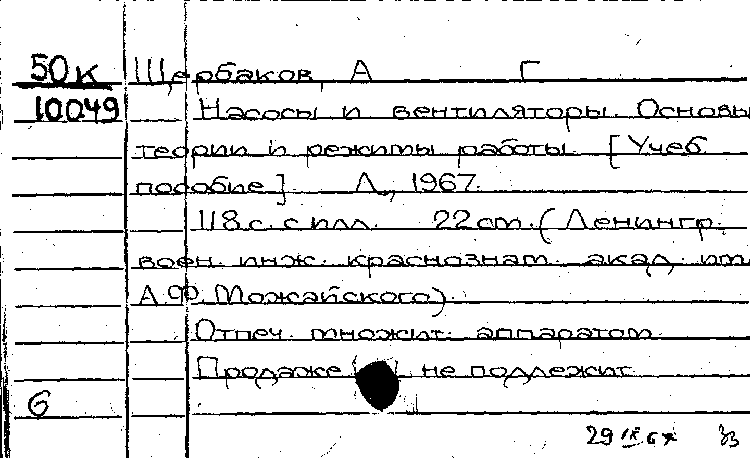 50к Щербаков, А Г
10049 Насосы и вентиляторы. Основы
теории и режимы работы. [Учеб.
пособие]. Л., 1967.
118 с. с илл. 22 см. (Ленингр.
воен. инж. краснознам. акад. им.
А.Ф. Можайского).
Отпеч. множит. аппаратом
Продаже не подлежит
б
29 IX 67